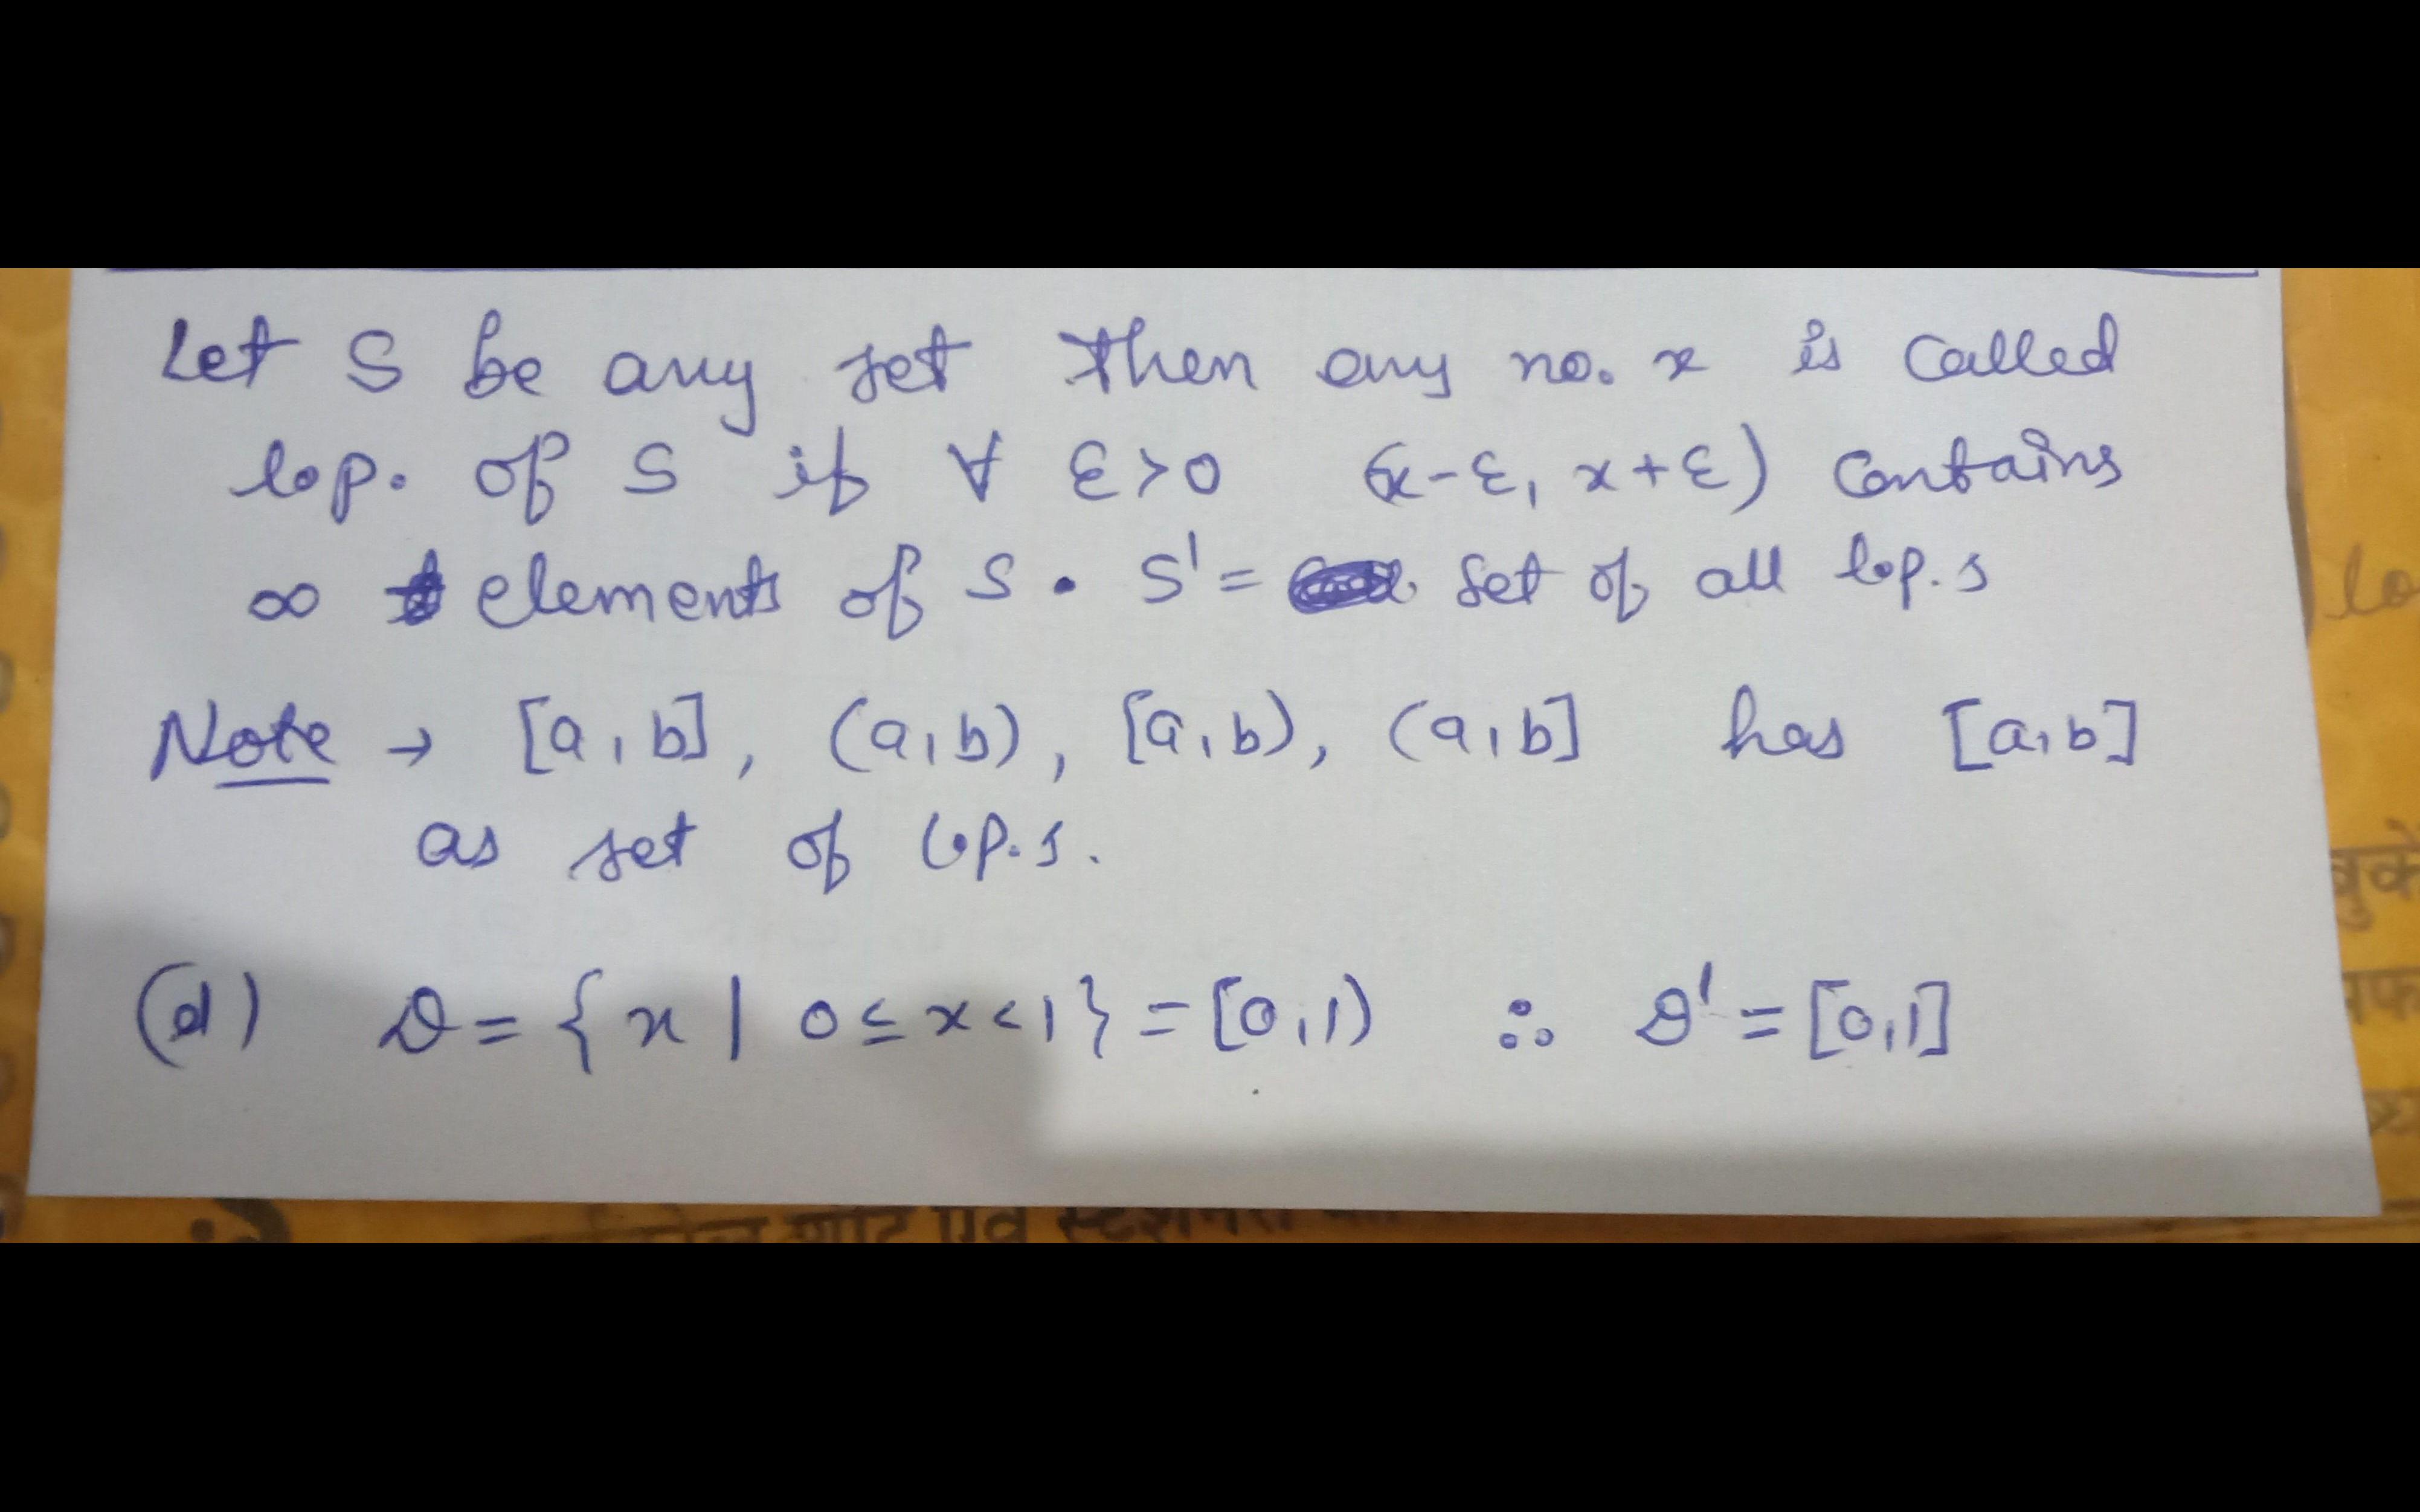 Let S be any set then any no. x is called
l.p. of S if ∀ ε>0 (x-ε, x+ε) contains
∞ elements of S. S' = set of all l.p.s
Note → [a,b], (a,b), [a,b), (a,b] has [a,b]
as set of l.p.s.
(d) D = {x | 0≤x<1} = [0,1) ∴ D' = [0,1]
lo